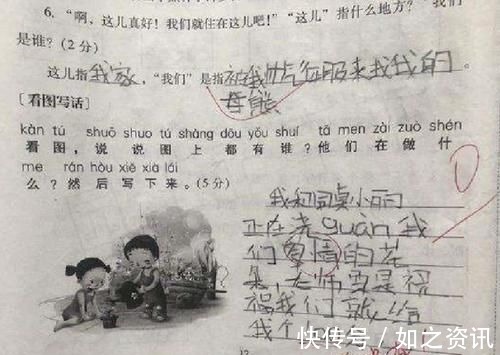 6. “啊，这儿真好！我们就住在这儿吧！”“这儿”指什么地方？“我们”
是谁？(2分)
这儿指我家，“我们”是指被我帅气征服来找我的。
母熊
[看图写话]
kàn tú shuō shuo tú shàng dōu yǒu shuí tā men zài zuò shén
看图，说说图上都有谁？他们在做什
me rán hòu xiě xià lái
么？然后写下来。(5分)
我和同桌小丽
正在浇guàn我
们爱情的花
朵，老师要是祝
福我们就给
我个
快传号/如之资讯